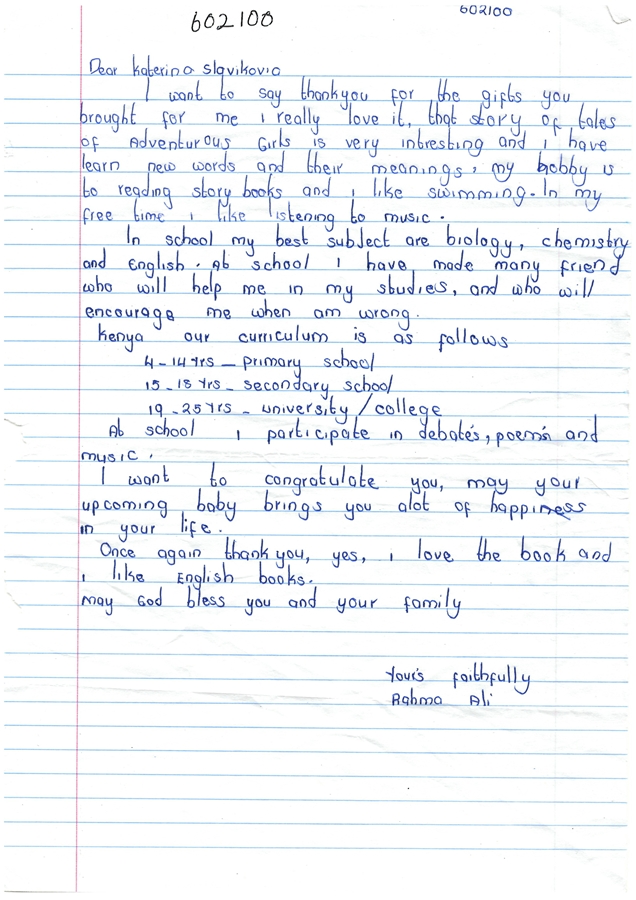 602100
602100
Dear Katerina Slavikovia
I want to say thankyou for the gifts you
brought for me i really love it, that story of tales
of Adventurous Girls is very intresting and i have
learn new words and their meanings, my hobby is
to reading story books and i like swimming. In my
free time i like listening to music.
In school my best subject are biology, chemistry
and English. At school I have made many friend
who will help me in my studies, and who will
encourage me when am wrong.
Kenya our curriculum is as follows
4-14 yrs - primary school
15-18 yrs - secondary school
19-25 yrs - university/college
At school i participate in debates, poems and
music.
I want to congratulate you, may your
upcoming baby brings you alot of happiness
in your life.
Once again thank you, yes, i love the book and
i like English books.
may God bless you and your family
Your's faithfully
Rahma Ali